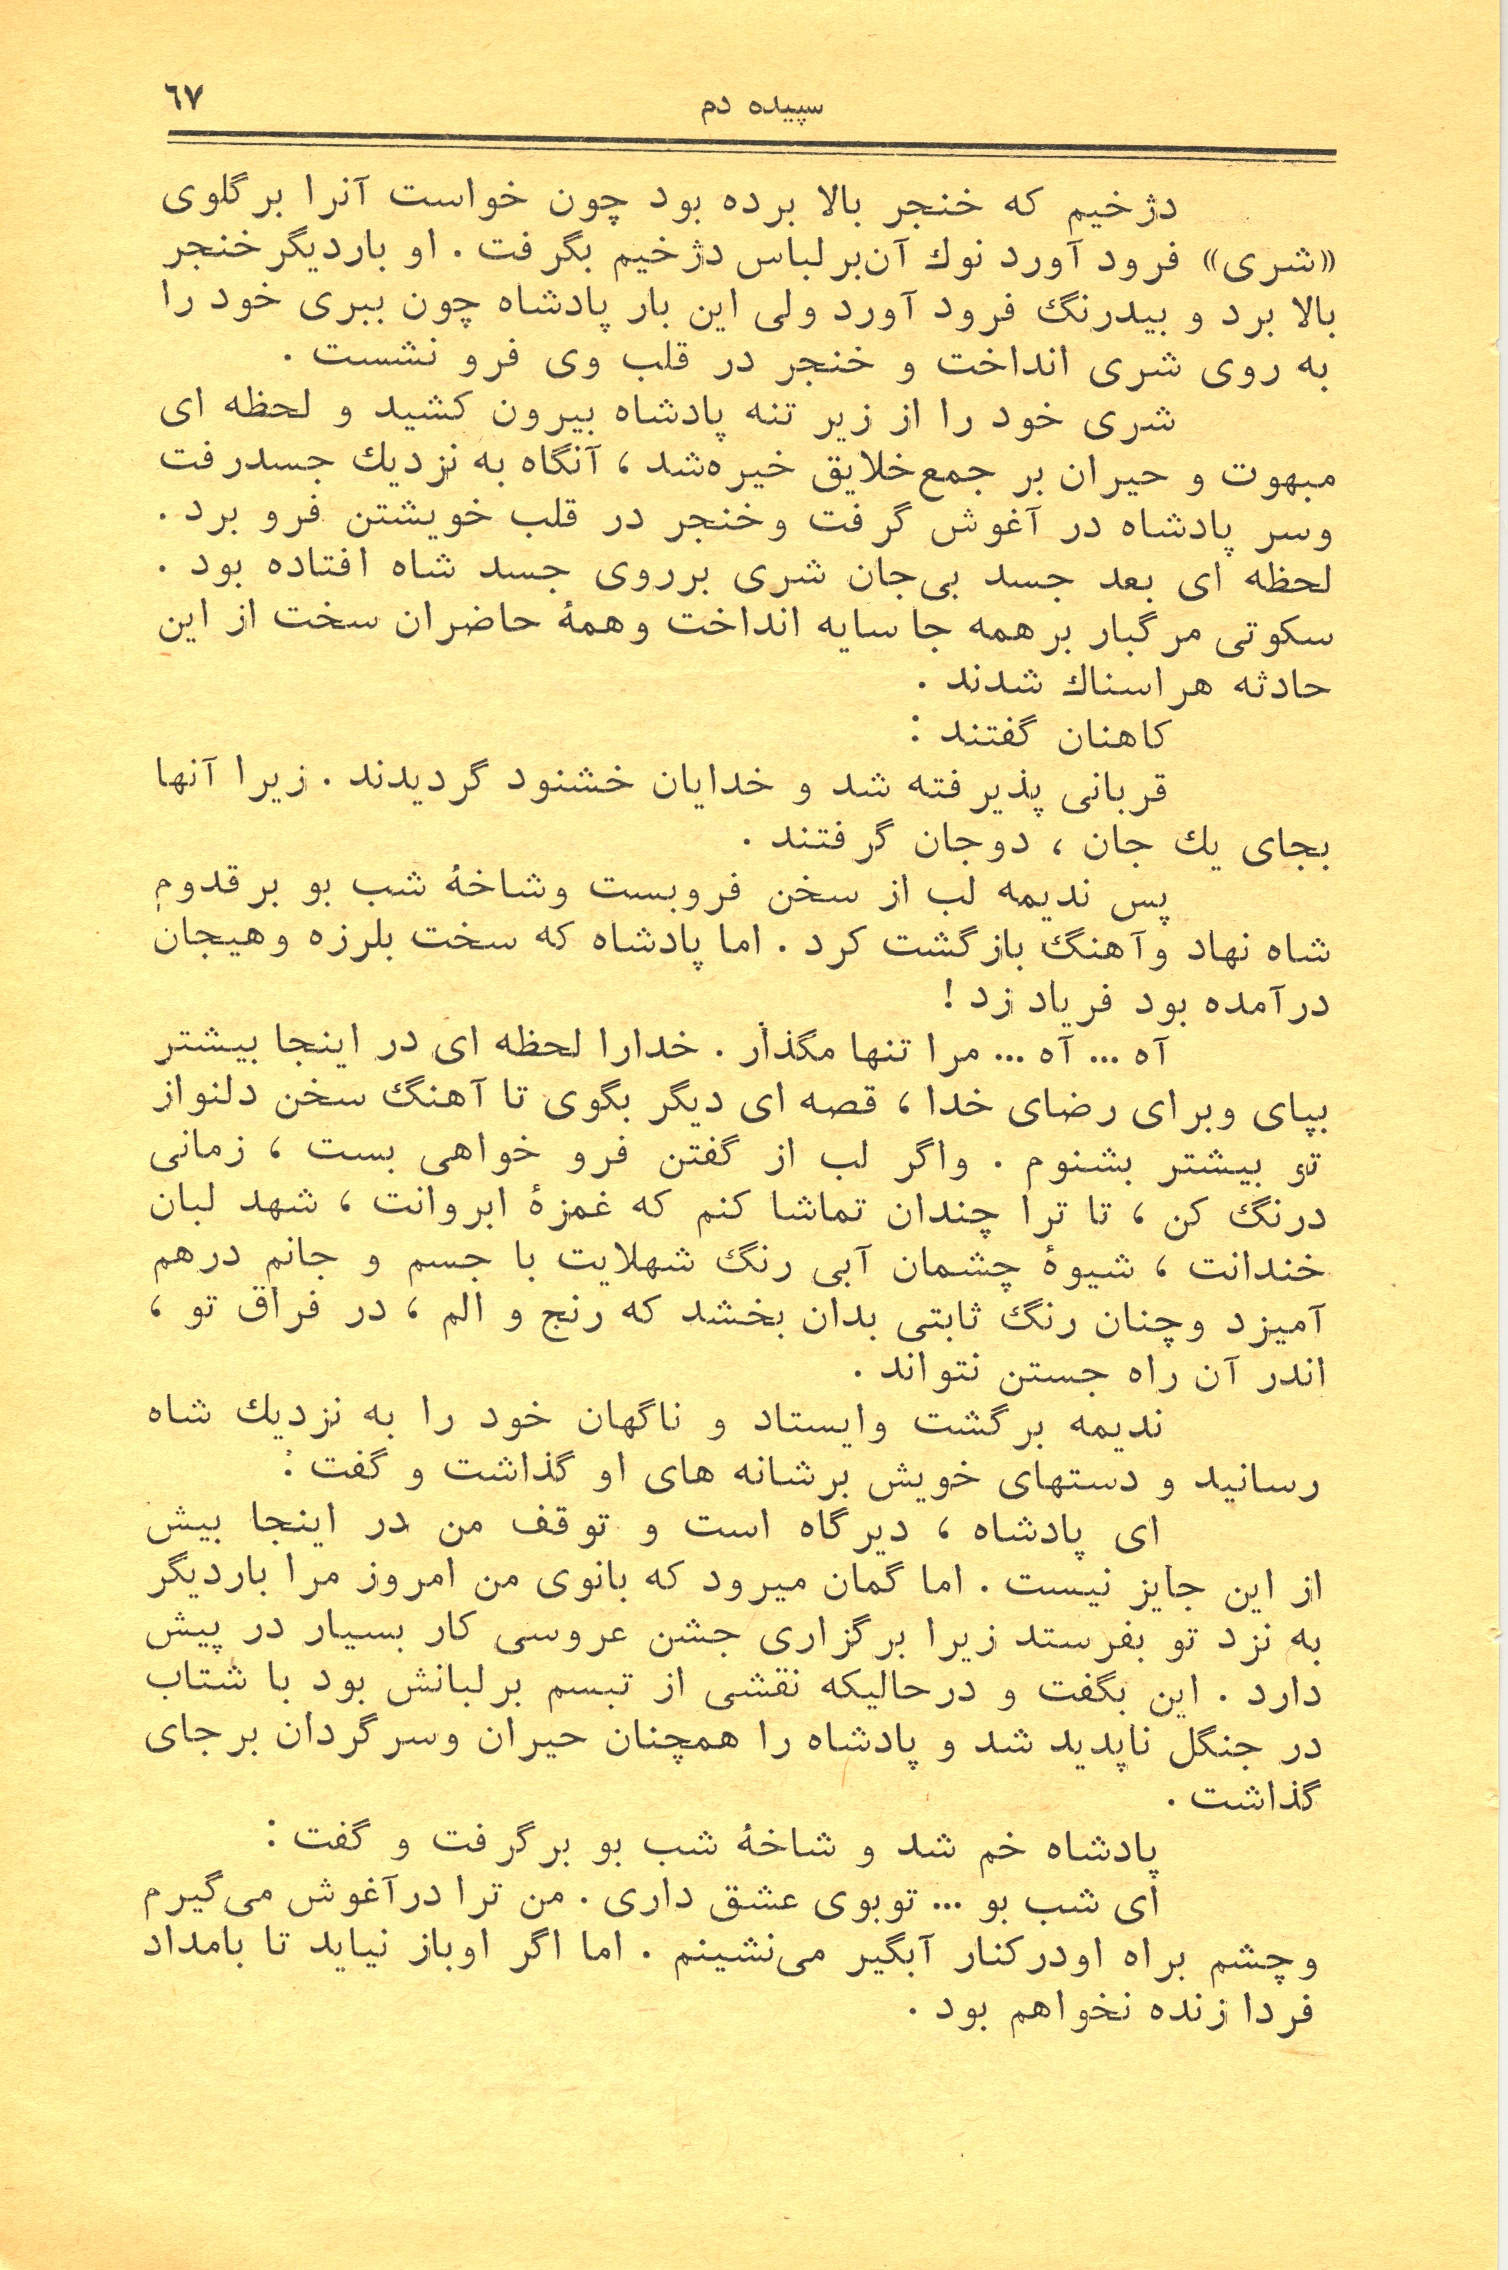 سپیده دم ٦٧
دژخیم که خنجر بالا برده بود چون خواست آنرا بر گلوی
«شری» فرود آورد نوك آن‌بر لباس دژخیم بگرفت . او باردیگر خنجر
بالا برد و بیدرنگ فرود آورد ولی این بار پادشاه چون ببری خود را
به روی شری انداخت و خنجر در قلب وی فرو نشست .
شری خود را از زیر تنه پادشاه بیرون کشید و لحظه ای
مبهوت و حیران بر جمع‌خلایق خیره‌شد ، آنگاه به نزدیك جسدرفت
وسر پادشاه در آغوش گرفت وخنجر در قلب خویشتن فرو برد .
لحظه ای بعد جسد بی‌جان شری برروی جسد شاه افتاده بود .
سکوتی مرگبار برهمه جا سایه انداخت وهمهٔ حاضران سخت از این
حادثه هراسناك شدند .
کاهنان گفتند :
قربانی پذیرفته شد و خدایان خشنود گردیدند . زیرا آنها
بجای یك جان ، دوجان گرفتند .
پس ندیمه لب از سخن فروبست وشاخهٔ شب بو برقدوم
شاه نهاد وآهنگ بازگشت کرد . اما پادشاه که سخت بلرزه وهیجان
درآمده بود فریاد زد !
آه ... آه ... مرا تنها مگذار . خدارا لحظه ای در اینجا بیشتر
بپای وبرای رضای خدا ، قصه ای دیگر بگوی تا آهنگ سخن دلنواز
تو بیشتر بشنوم . واگر لب از گفتن فرو خواهی بست ، زمانی
درنگ کن ، تا ترا چندان تماشا کنم که غمزهٔ ابروانت ، شهد لبان
خندانت ، شیوهٔ چشمان آبی رنگ شهلایت با جسم و جانم درهم
آمیزد وچنان رنگ ثابتی بدان بخشد که رنج و الم ، در فراق تو ،
اندر آن راه جستن نتواند .
ندیمه برگشت وایستاد و ناگهان خود را به نزدیك شاه
رسانید و دستهای خویش برشانه های او گذاشت و گفت :
ای پادشاه ، دیرگاه است و توقف من در اینجا بیش
از این جایز نیست . اما گمان میرود که بانوی من امروز مرا باردیگر
به نزد تو بفرستد زیرا برگزاری جشن عروسی کار بسیار در پیش
دارد . این بگفت و درحالیکه نقشی از تبسم برلبانش بود با شتاب
در جنگل ناپدید شد و پادشاه را همچنان حیران وسرگردان برجای
گذاشت .
پادشاه خم شد و شاخهٔ شب بو برگرفت و گفت :
ای شب بو ... توبوی عشق داری . من ترا درآغوش می‌گیرم
وچشم براه اودرکنار آبگیر می‌نشینم . اما اگر اوباز نیاید تا بامداد
فردا زنده نخواهم بود .